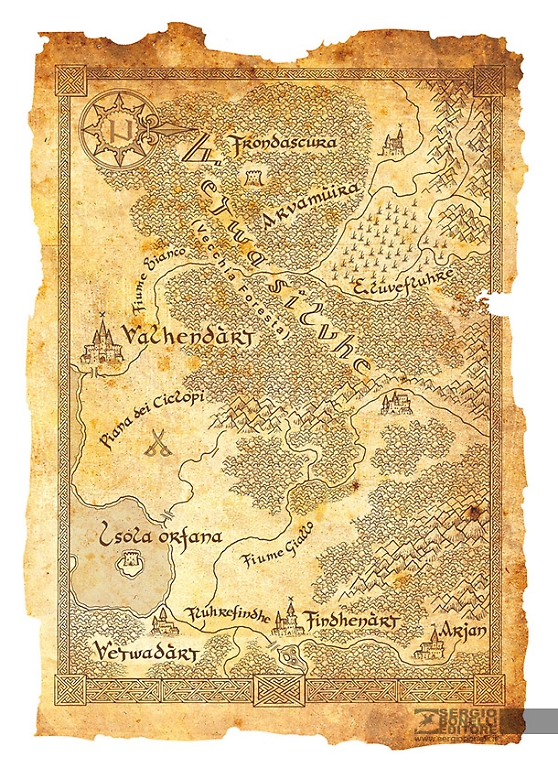 N
Frondascura
Arvamùira
Lerwa sìlvhe
(Vecchia Foresta)
Fiume Bianco
Elùvefluhre
Valhendàrt
Piana dei Ciclopi
Isola orfana
Fiume Giallo
Fluhrefindhe
Findhenàrt
Arjan
Vetwadàrt
SERGIO
BONELLI
EDITORE
www.sergiobonelli.it